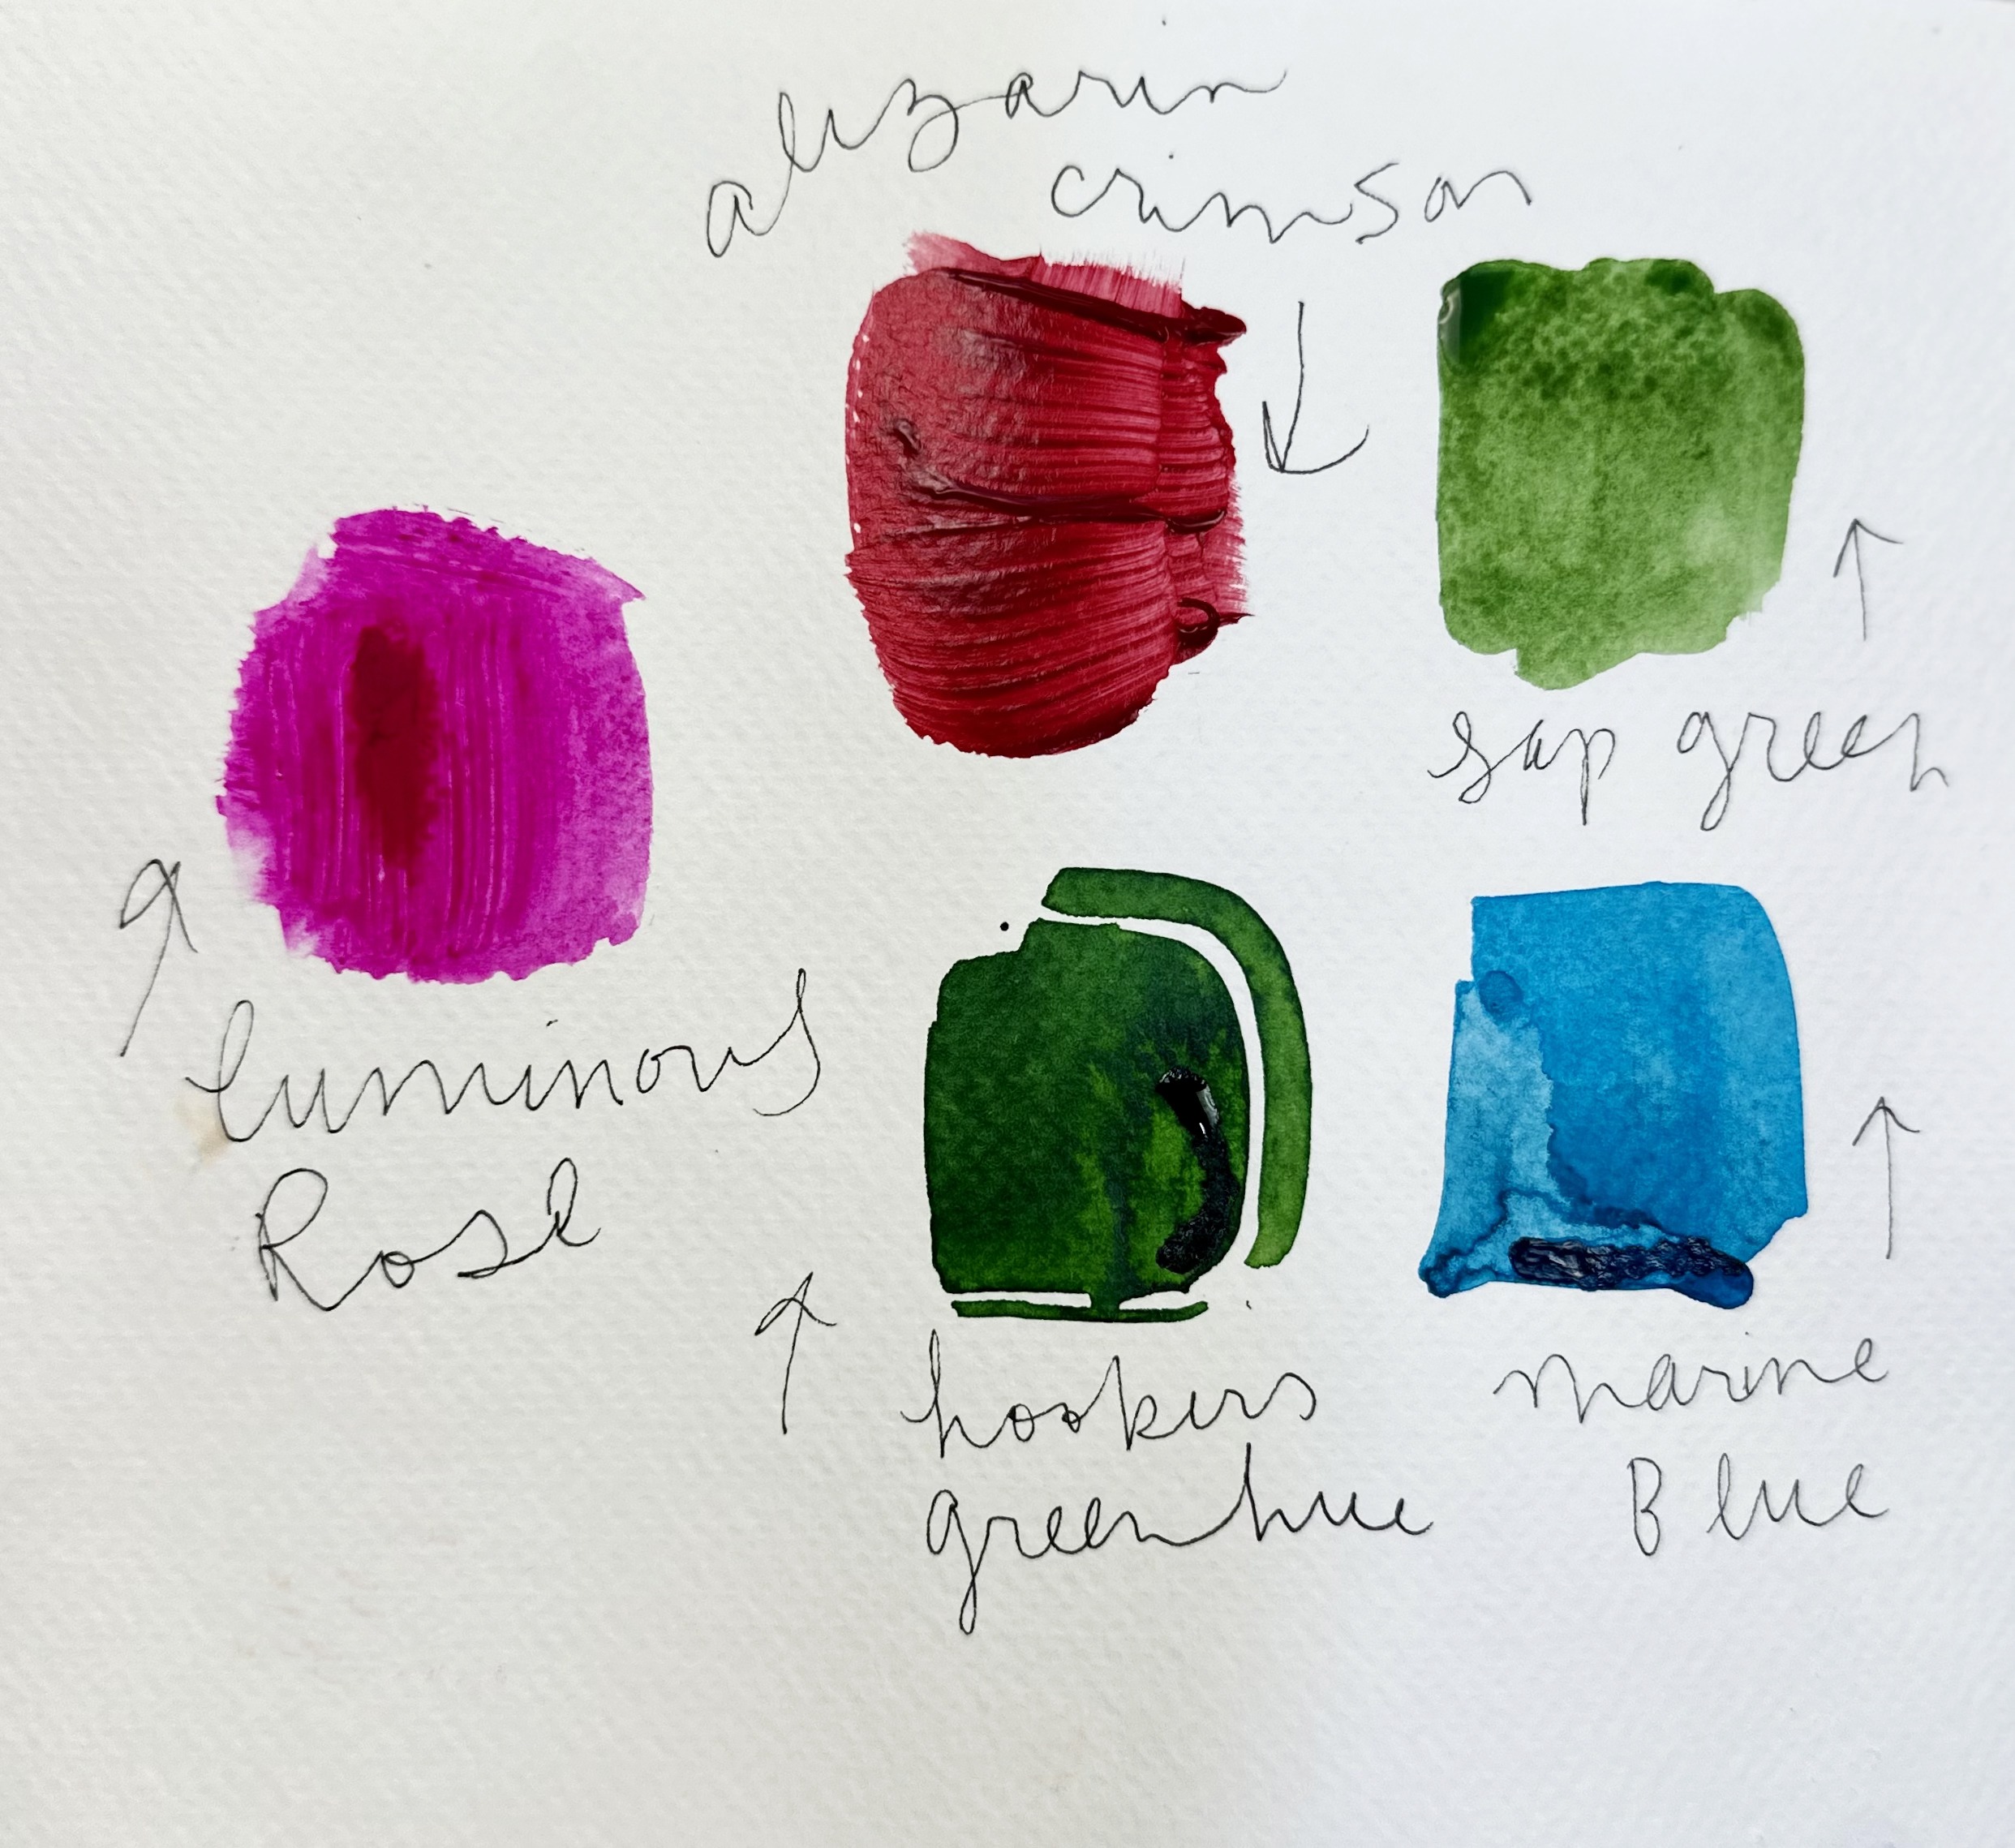 alizarin
crimson
sap green
luminous
Rose
hookers
green hue
marine
Blue